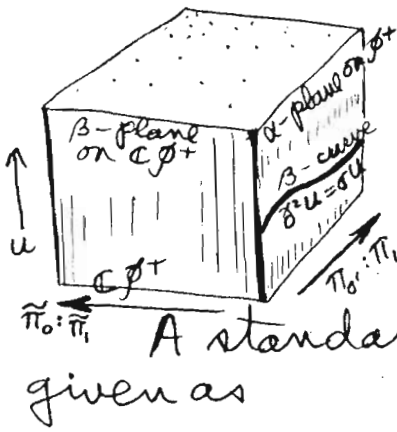 α-plane on ℐ+
β-plane
on ℂℐ+
β-curve
ð²u=σu
u
ℂℐ+
π̃₀:π̃₁
π₀':π₁
A standa
given as